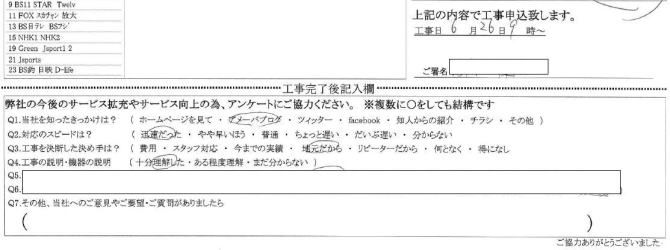 9 BS11 STAR Twelv
11 FOX スカチャン 放大
13 BS日テレ BSフジ
15 NHK1 NHK2
19 Green Jsport1 2
21 Jsports
23 BS釣 日映 D-life
上記の内容で工事申込致します。
工事日 6月26日9時～
ご署名
工事完了後記入欄
弊社の今後のサービス拡充やサービス向上の為、アンケートにご協力ください。 ※複数に○をしても結構です
Q1.当社を知ったきっかけは？ ( ホームページを見て ・ アメーバブログ ・ ツイッター ・ facebook ・ 知人からの紹介 ・ チラシ ・ その他 )
Q2.対応のスピードは？ ( 迅速だった ・ やや早いほう ・ 普通 ・ ちょっと遅い ・ だいぶ遅い ・ 分からない
Q3.工事を決断した決め手は？ ( 費用 ・ スタッフ対応 ・ 今までの実績 ・ 地元だから ・ リピーターだから ・ 何となく ・ 特になし
Q4.工事の説明・機器の説明 ( 十分理解した ・ ある程度理解 ・ まだ分からない )
Q5.
Q6.
Q7.その他、当社へのご意見やご要望・ご質問がありましたら
( )
ご協力ありがとうございました